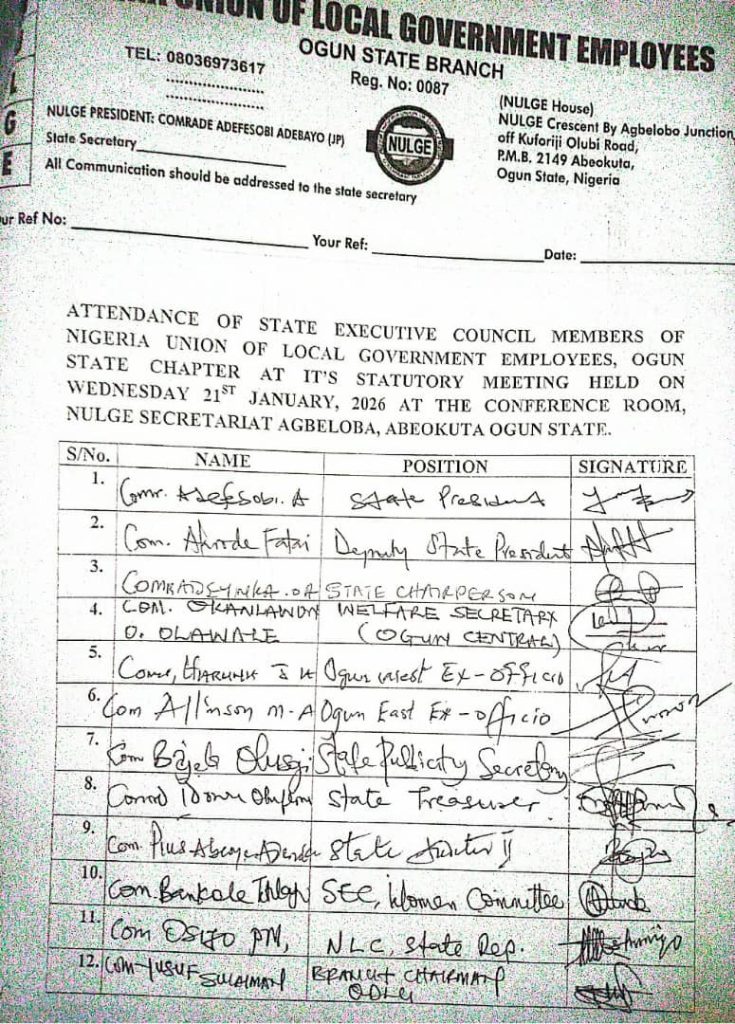 UNION OF LOCAL GOVERNMENT EMPLOYEES
OGUN STATE BRANCH
Reg. No: 0087
TEL: 08036973617
NULGE PRESIDENT: COMRADE ADEFESOBI ADEBAYO (JP)
State Secretary
All Communication should be addressed to the state secretary
NULGE
(NULGE House)
NULGE Crescent By Agbelobo Junction,
off Kuforiji Olubi Road,
P.M.B. 2149 Abeokuta,
Ogun State, Nigeria
L
G
E
ur Ref No:
Your Ref:
Date:
ATTENDANCE OF STATE EXECUTIVE COUNCIL MEMBERS OF
NIGERIA UNION OF LOCAL GOVERNMENT EMPLOYEES, OGUN
STATE CHAPTER AT IT'S STATUTORY MEETING HELD ON
WEDNESDAY 21ST JANUARY, 2026 AT THE CONFERENCE ROOM,
NULGE SECRETARIAT AGBELOBA, ABEOKUTA OGUN STATE.
S/No. NAME POSITION SIGNATURE
1. Comr. Adefesobi. A State President
2. Com. Fatai Deputy State President
3. STATE CHAIRPERSON
4. COM. OKANLAWON WELFARE SECRETARY
O. OLAWALE (OGUN CENTRAL)
5. Ogun West Ex-officio
6. Com Allinson M.A Ogun East Ex-officio
7. Com State Publicity Secretary
8. State Treasurer.
9. Com Pius State II
10. Com Bankole SEC, Women Committee
11. Com NLC, State Rep.
12. COM YUSUF SULAIMAN BRANCH CHAIRMAN
ODLG